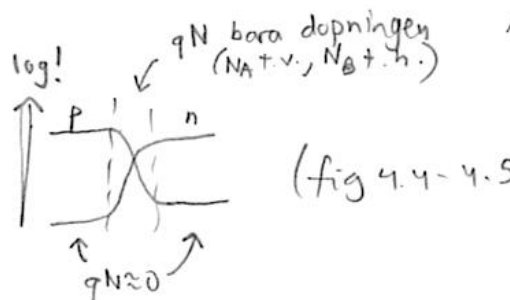 qN bara dopningen
(NA t.v., NB t.h.)
log!
p
n
(fig 4.4-4.5
qN≈0